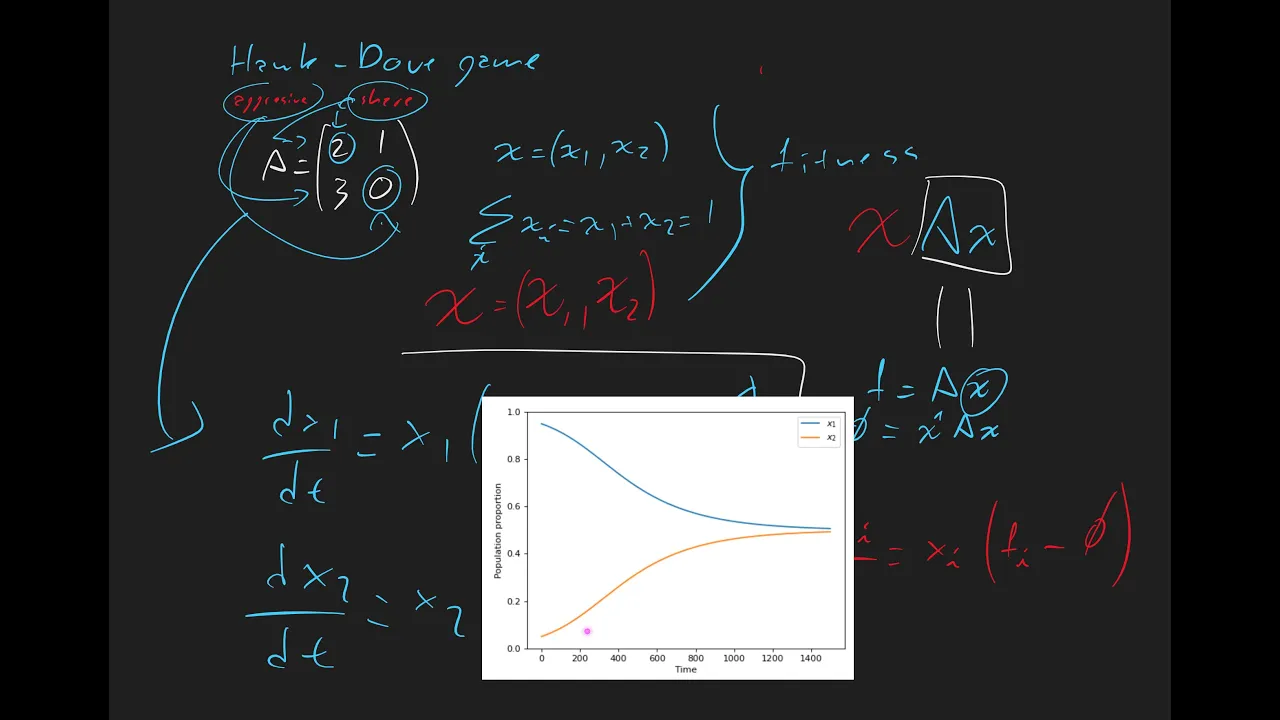 Hawk - Dove game
aggresive share
A = (2 1
3 0)
x = (x1, x2)
∑i xi = x1 + x2 = 1
x = (x1, x2)
fitness
x Ax
f = Ax
ϕ = x^T Ax
dx1/dt = x1 (
dx2/dt = x2
i = xi (fi - ϕ)
x1
x2
1.0
0.8
0.6
0.4
0.2
0.0
Population proportion
0 200 400 600 800 1000 1200 1400
Time